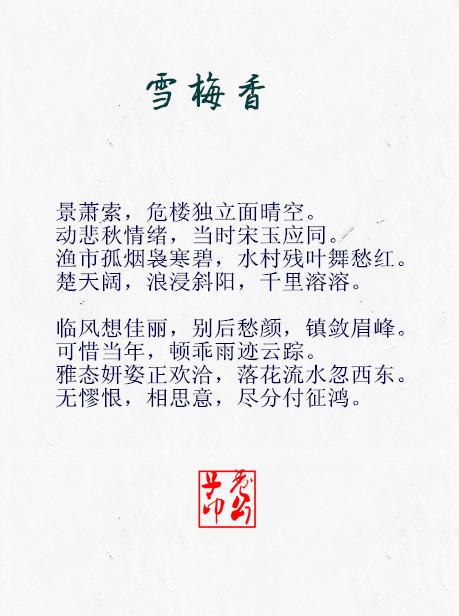 雪梅香
景萧索，危楼独立面晴空。
动悲秋情绪，当时宋玉应同。
渔市孤烟袅寒碧，水村残叶舞愁红。
楚天阔，浪浸斜阳，千里溶溶。
临风想佳丽，别后愁颜，镇敛眉峰。
可惜当年，顿乖雨迹云踪。
雅态妍姿正欢洽，落花流水忽西东。
无憀恨，相思意，尽分付征鸿。